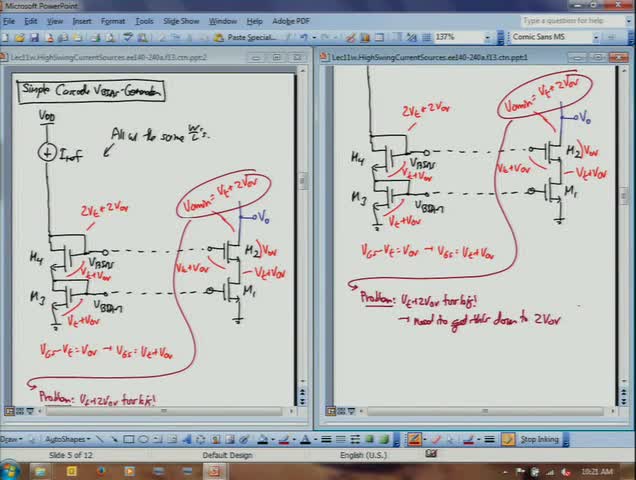 Microsoft PowerPoint
File Edit View Insert Format Tools Slide Show Window Help Adobe PDF
Type a question for help
Paste Special... 137% Comic Sans MS
Lec11w.HighSwingCurrentSources.ee140-240a.f13.ctn.ppt:2
Simple Cascode VBIAS-Generator
VDD
Iref
All w/ the same W/L's.
2Vt+2Vov
M4
VBIAS
Vt+Vov
M3
Vt+Vov
Vomin=Vt+2Vov
Vo
M2
Vov
Vt+Vov
Vt+Vov
M1
VGS-Vt=Vov → VGS=Vt+Vov
Problem: Vt+2Vov too big!
Lec11w.HighSwingCurrentSources.ee140-240a.f13.ctn.ppt:1
2Vt+2Vov
M4
VBIAS
Vt+Vov
M3
Vt+Vov
Vomin=Vt+2Vov
Vo
M2
Vov
Vt+Vov
Vt+Vov
M1
VGS-Vt=Vov → VGS=Vt+Vov
Problem: Vt+2Vov too big!
→ need to get this down to 2Vov
Draw AutoShapes
Stop Inking
Slide 5 of 12 Default Design English (U.S.)
10:21 AM